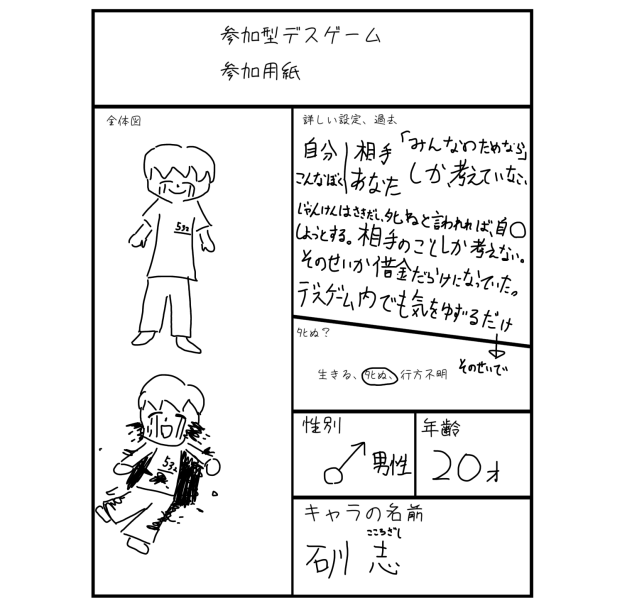 参加型デスゲーム
参加用紙
全体図
532
532
詳しい設定、過去
自分 相手 「みんなのためなら」
こんなぼく あなた しか、考えていない
じゃんけんはさきだし、タヒねと言われれば、自〇
しようとする。相手のことしか考えない。
そのせいか借金だらけになっていた。
デスゲーム内でも気をゆずるだけ
そのせいで
タヒぬ?
生きる、タヒぬ、行方不明
性別
♂男性
年齢
20才
キャラの名前
こころざし
石川 志